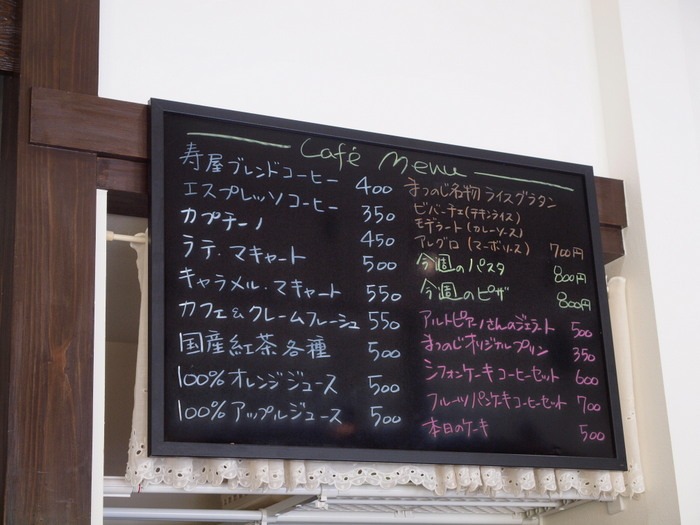 Café Menu
寿屋ブレンドコーヒー 400
エスプレッソコーヒー 350
カプチーノ 450
ラテ・マキャート 500
キャラメル・マキャート 550
カフェ&クレームフレーシュ 550
国産紅茶各種 500
100%オレンジジュース 500
100%アップルジュース 500
まつのじ名物 ライスグラタン
ビバーチェ(チキンライス)
モデラート(カレーソース)
アレグロ(マーボソース) 700円
今週のパスタ 800円
今週のピザ 800円
アルトピアーノさんのジェラート 500
まつのじオリジナルプリン 350
シフォンケーキコーヒーセット 600
フルーツパンケーキコーヒーセット 700
本日のケーキ 500